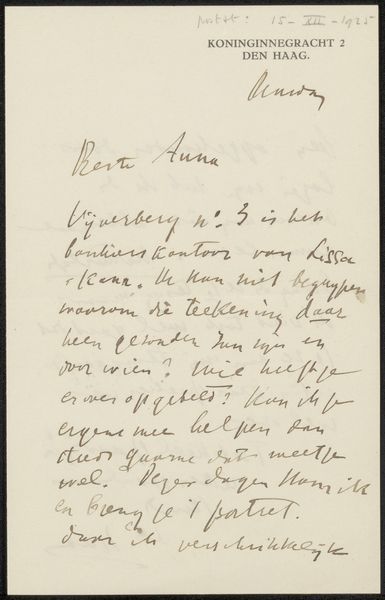 postst: 15-XII-1925
KONINGINNEGRACHT 2
DEN HAAG.
Beste Anna
Vijverberg no. 3 is het
bankierskantoor van Lissa
& Kann. Ik kan niet begrijpen
waarom die teekening daar
heen gezonden zou zijn en
door wien? Wie heeft je
er over opgebeld? Kan ik je
ergens mee helpen dan
steeds gaarne dat weet je
wel. Dezer dagen kom ik
en breng je 't portret.
daar ik verschrikkelijk